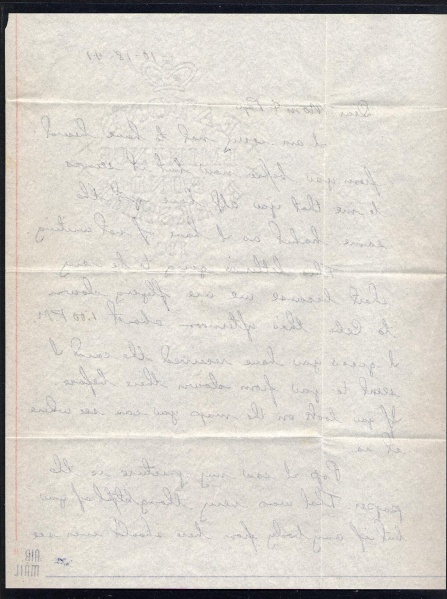 10-18-41
Dear Mom & Pop:
I am sorry not to have heard
from you before now but it seems
to me that you all have the
same habit as I have of not writing
This letter is going to be very
short because we are flying down
to Cebu this afternoon about 1:00 P.M.
I guess you have received the card I
sent to you from down there before.
If you look on the map you can see where
it is
Pop I saw my picture in the
paper. That was very thoughtful of you
but if anybody from here should ever see
AIR
MAIL